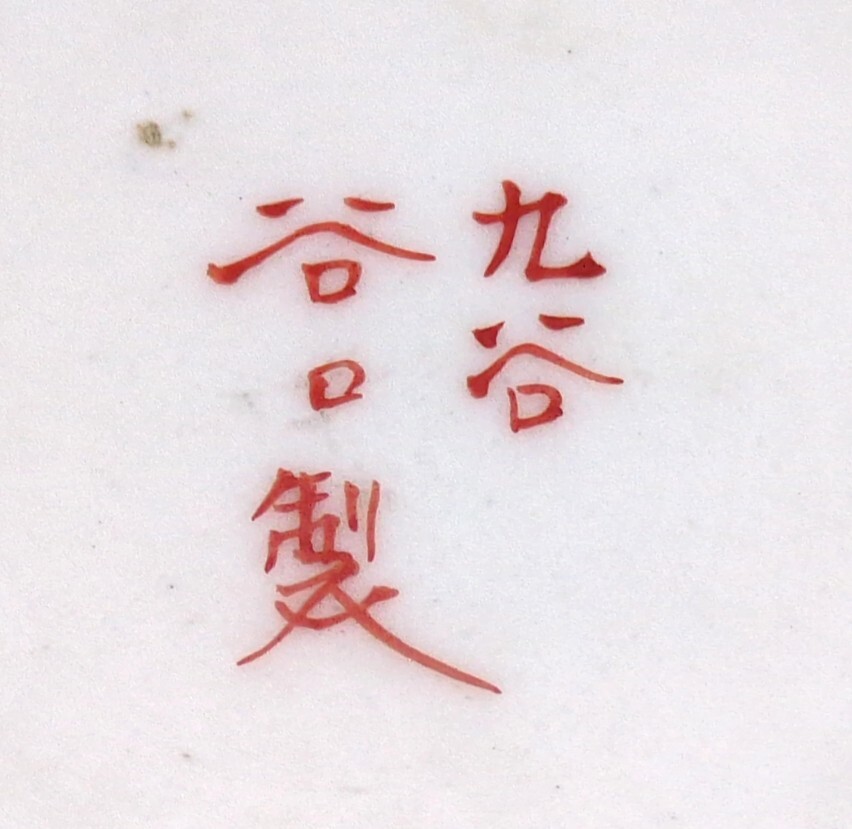 九谷
谷口製